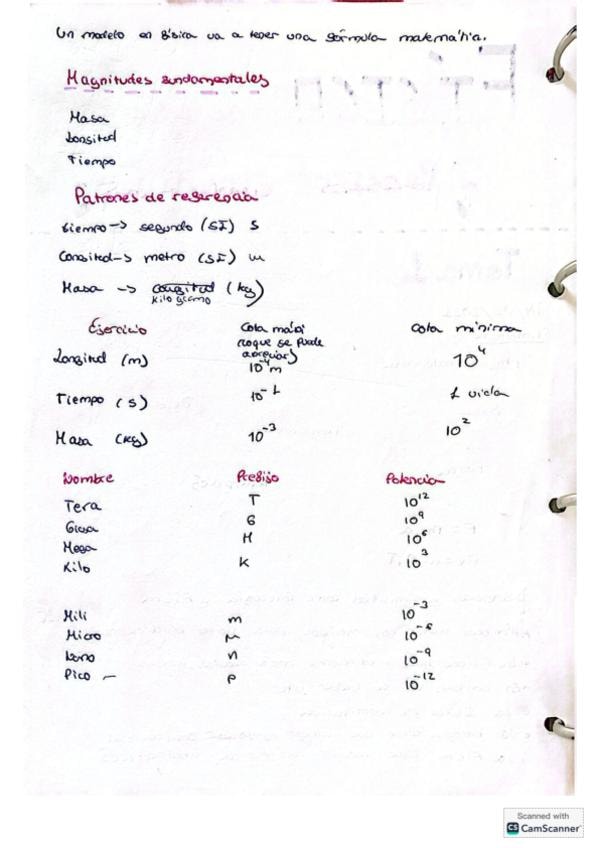 Un modelo en física va a tener una fórmula matemática.
Magnitudes fundamentales
Masa
Longitud
Tiempo
Patrones de referencia
tiempo -> segundo (SI) s
Longitud -> metro (SI) m
Masa -> (kg)
kilogramo
Ejercicio Cota maxi cota mínima
(loque se puede
apreciar)
Longitud (m) 10⁻⁴ m 10⁴
Tiempo (s) 10⁻¹ 1 vida
Masa (kg) 10⁻³ 10²
Nombre Prefijo Potencia
Tera T 10¹²
Giga G 10⁹
Mega M 10⁶
Kilo K 10³
Mili m 10⁻³
Micro μ 10⁻⁶
Nano n 10⁻⁹
Pico – p 10⁻¹²
Scanned with
CS CamScanner